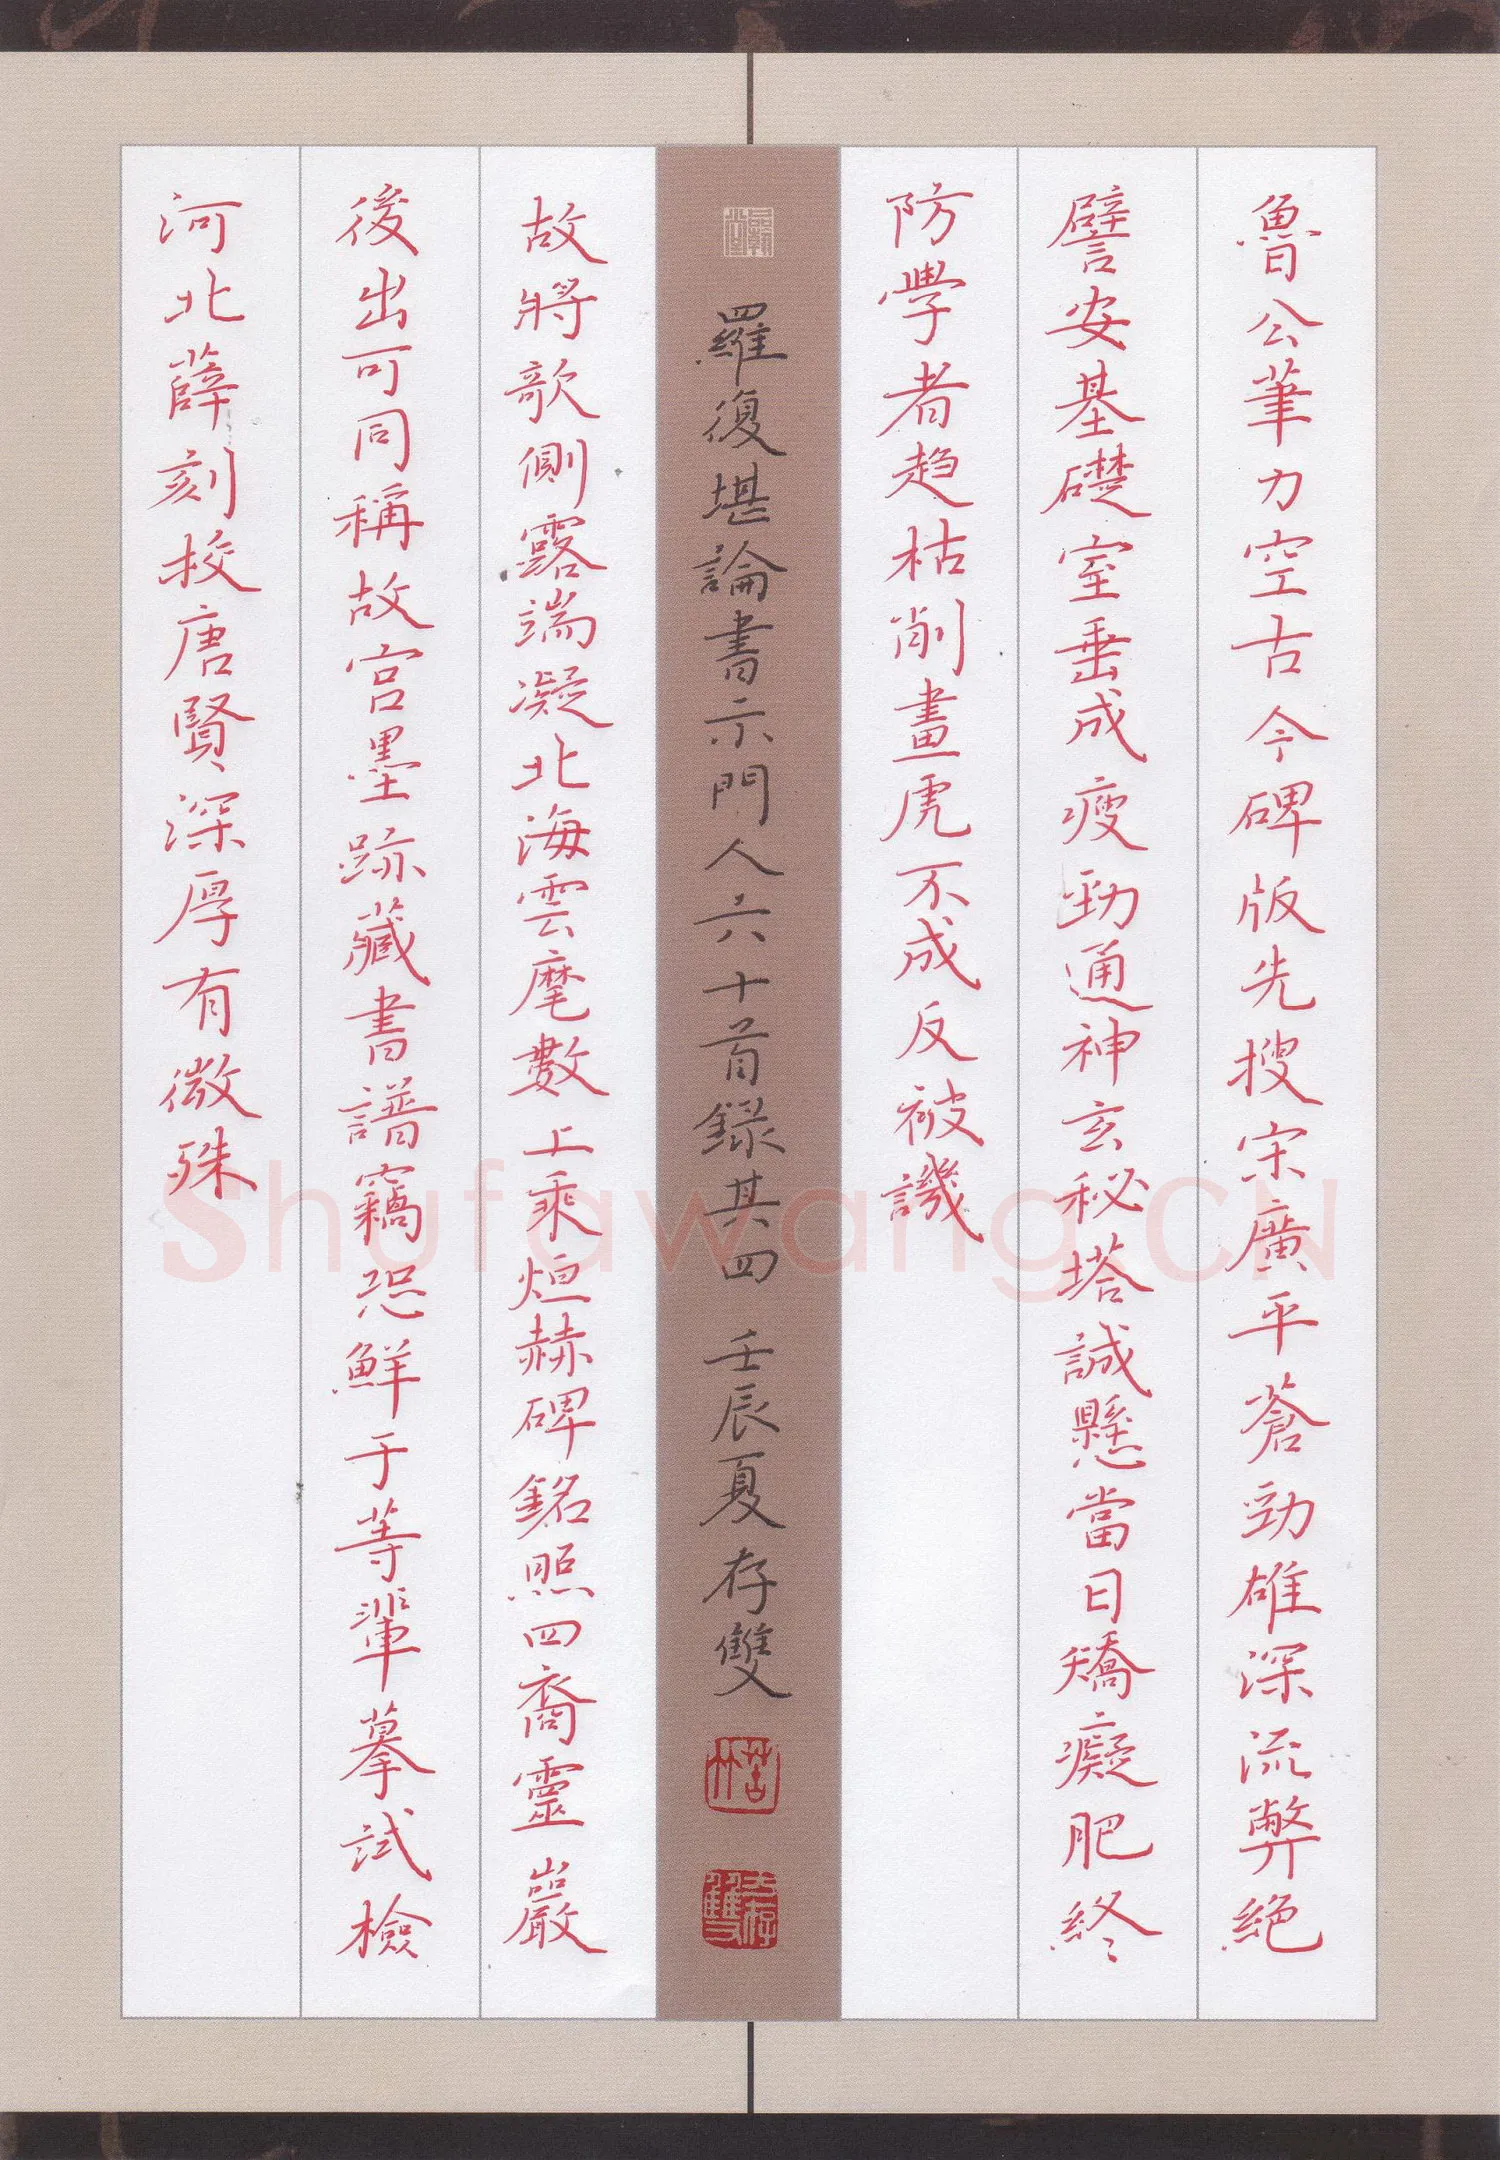 魯公筆力空古今碑版先搜宋廣平蒼勁雄深流弊絕
譬安基礎室垂成瘦勁通神玄秘塔誠懸當日矯癡肥終
防學者趋枯削畫虎不成反被譏
羅復堪論書示門人六十首録其四 壬辰夏存雙
故將欹側露端凝北海雲麾數上乘烜赫碑銘照四裔靈巖
後出可同稱故宮墨跡藏書譜竊恐鮮于等輩摹試檢
河北薛刻校唐賢深厚有微殊
Shufawang.CN